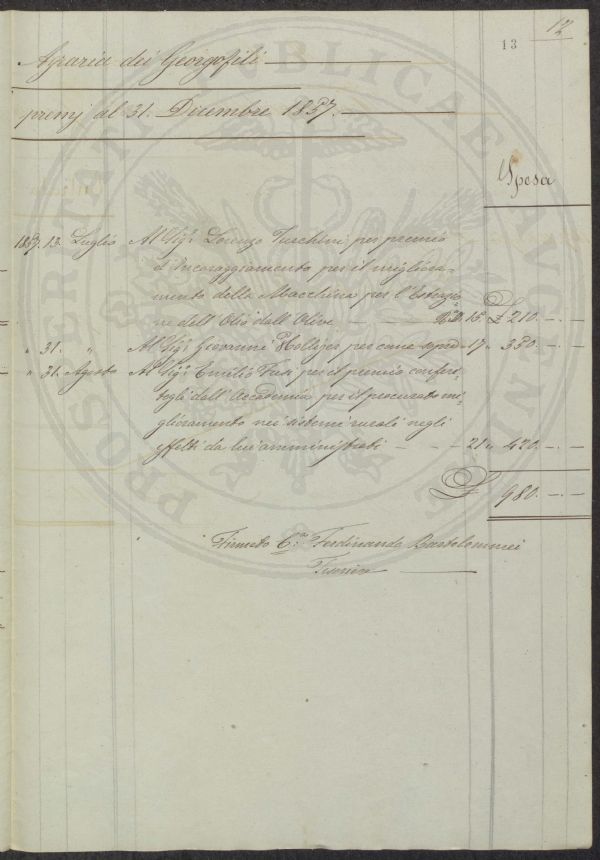 13
12
Agraria dei Georgofili
premj al 31. Dicembre 1857.
Spesa
1857. 13. Luglio Al Sig.r Lorenzo Turchini per premio
d'Incoraggiamento per il miglio-
mento della Macchina per l'Estrazio
ne dell'Olio dall'Olive N.o 15. £ 210. - -
" 31. " Al Sig.r Giovanni per come sopra 17 " 350. - -
" 31. Agosto Al Sig.r Emilio per il premio confer
togli dall'Accademia per il procurato mi-
glioramento nei sistemi rurali negli
effetti da lui amministrati - - - 21 " 420. - -
£ 980. - -
Firmato C. Ferdinando Bartolommei
PROSPERITATI PUBLICAE AUGENDAE